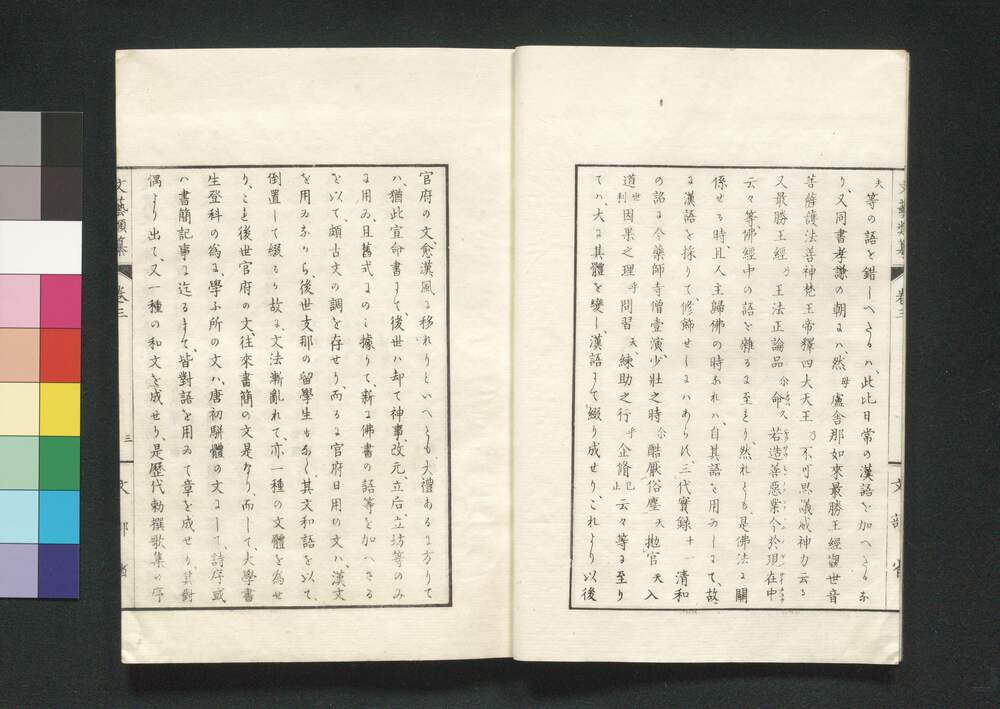 夫等の語を錯しへたるハ、此比日常の漢語を加へたるな
り、又同書孝謙の朝にハ、然毋盧舍那如來最勝王經觀世音
菩薩護法善神梵王帝釋四大天王乃不可思議威神力云々
又最勝王經乃王法正論品尓命久若造善惡業今於現在中
云々等、佛經中の語を雜るに至れり、然れども、是佛法に關
係せる時、且人主歸佛の時なれハ、自其語を用ゐしにて、故
に漢語を採りて、修飾せしにハあらず、三代實録十一淸和
の詔に今藥師寺僧壹演、少壯之時尓酷厭俗塵天拋官天入
道世利因果之理乎問習天、練助之行乎企脩己止云々等に至り
てハ、大に其體を變し、漢語にて綴り成せり、これより以後
官府の文、愈漢風に移れりといへとも、大禮あるに方りて
ハ、猶此宣命書にて、後世ハ却て神事、改元、立后立坊等のみ
に用ゐ、且舊式にのミ據りて、新に佛書の語等を加へさる
を以て、頗古文の調を存せり、而るに官府日用の文ハ、漢文
を用ゐなから、後世支那の留學生もなく、其文和語を以て、
倒置して綴るか故に、文法漸亂れて、亦一種の文體を為せ
り、こも後世官府の文、往來書簡の文是なり、而して、大學書
生登科の為に、學ふ所の文ハ、唐初駢體の文にして、詩序或
ハ書簡記事に迄るまて、皆對語を用ゐて章を成せり、其對
偶より出て、又一種の和文を成せり、是歷代勅撰歌集の序
文藝類纂 卷三
三
文部省
文藝類纂 卷三
文部省